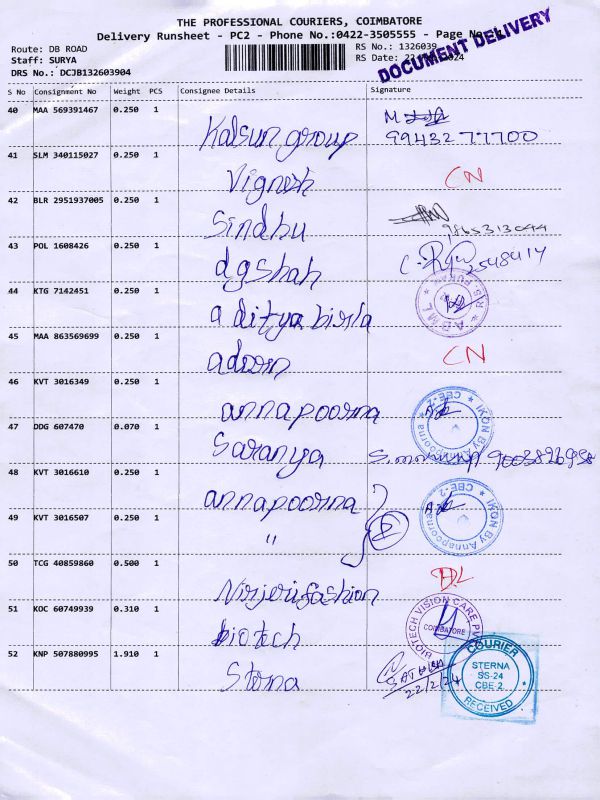 THE PROFESSIONAL COURIERS, COIMBATORE
Delivery Runsheet - PC2 - Phone No.:0422-3505555 - Page No
DOCUMENT DELIVERY
Route: DB ROAD
RS No.: 1326039
Staff: SURYA
RS Date: 22 2024
DRS No.: DCJB132603904
S No Consignment No Weight PCS Consignee Details Signature
40 MAA 569391467 0.250 1 Kalsun group
9943277700
41 SLM 340115027 0.250 1 Vignesh CN
42 BLR 2951937005 0.250 1 Sindhu
9865313044
43 POL 1608426 0.250 1 dgshah
2548414
44 KTG 7142451 0.250 1 aditya birla
ABML R.S. PURAM
45 MAA 863569699 0.250 1 adorn CN
46 KVT 3016349 0.250 1 annapoorna
IKON By Annapoorna CBE-2
47 DDG 607470 0.070 1 Saranya
9003826958
48 KVT 3016610 0.250 1 annapoorna
IKON By Annapoorna CBE-2
49 KVT 3016507 0.250 1 "
50 TCG 40859860 0.500 1 Nirjerifashion DL
51 KOC 60749939 0.310 1 biotech
BIOTECH VISION CARE
COIMBATORE
52 KNP 507880995 1.910 1 Sterna
22/2/24
COURIER
STERNA
SS-24
CBE-2
RECEIVED